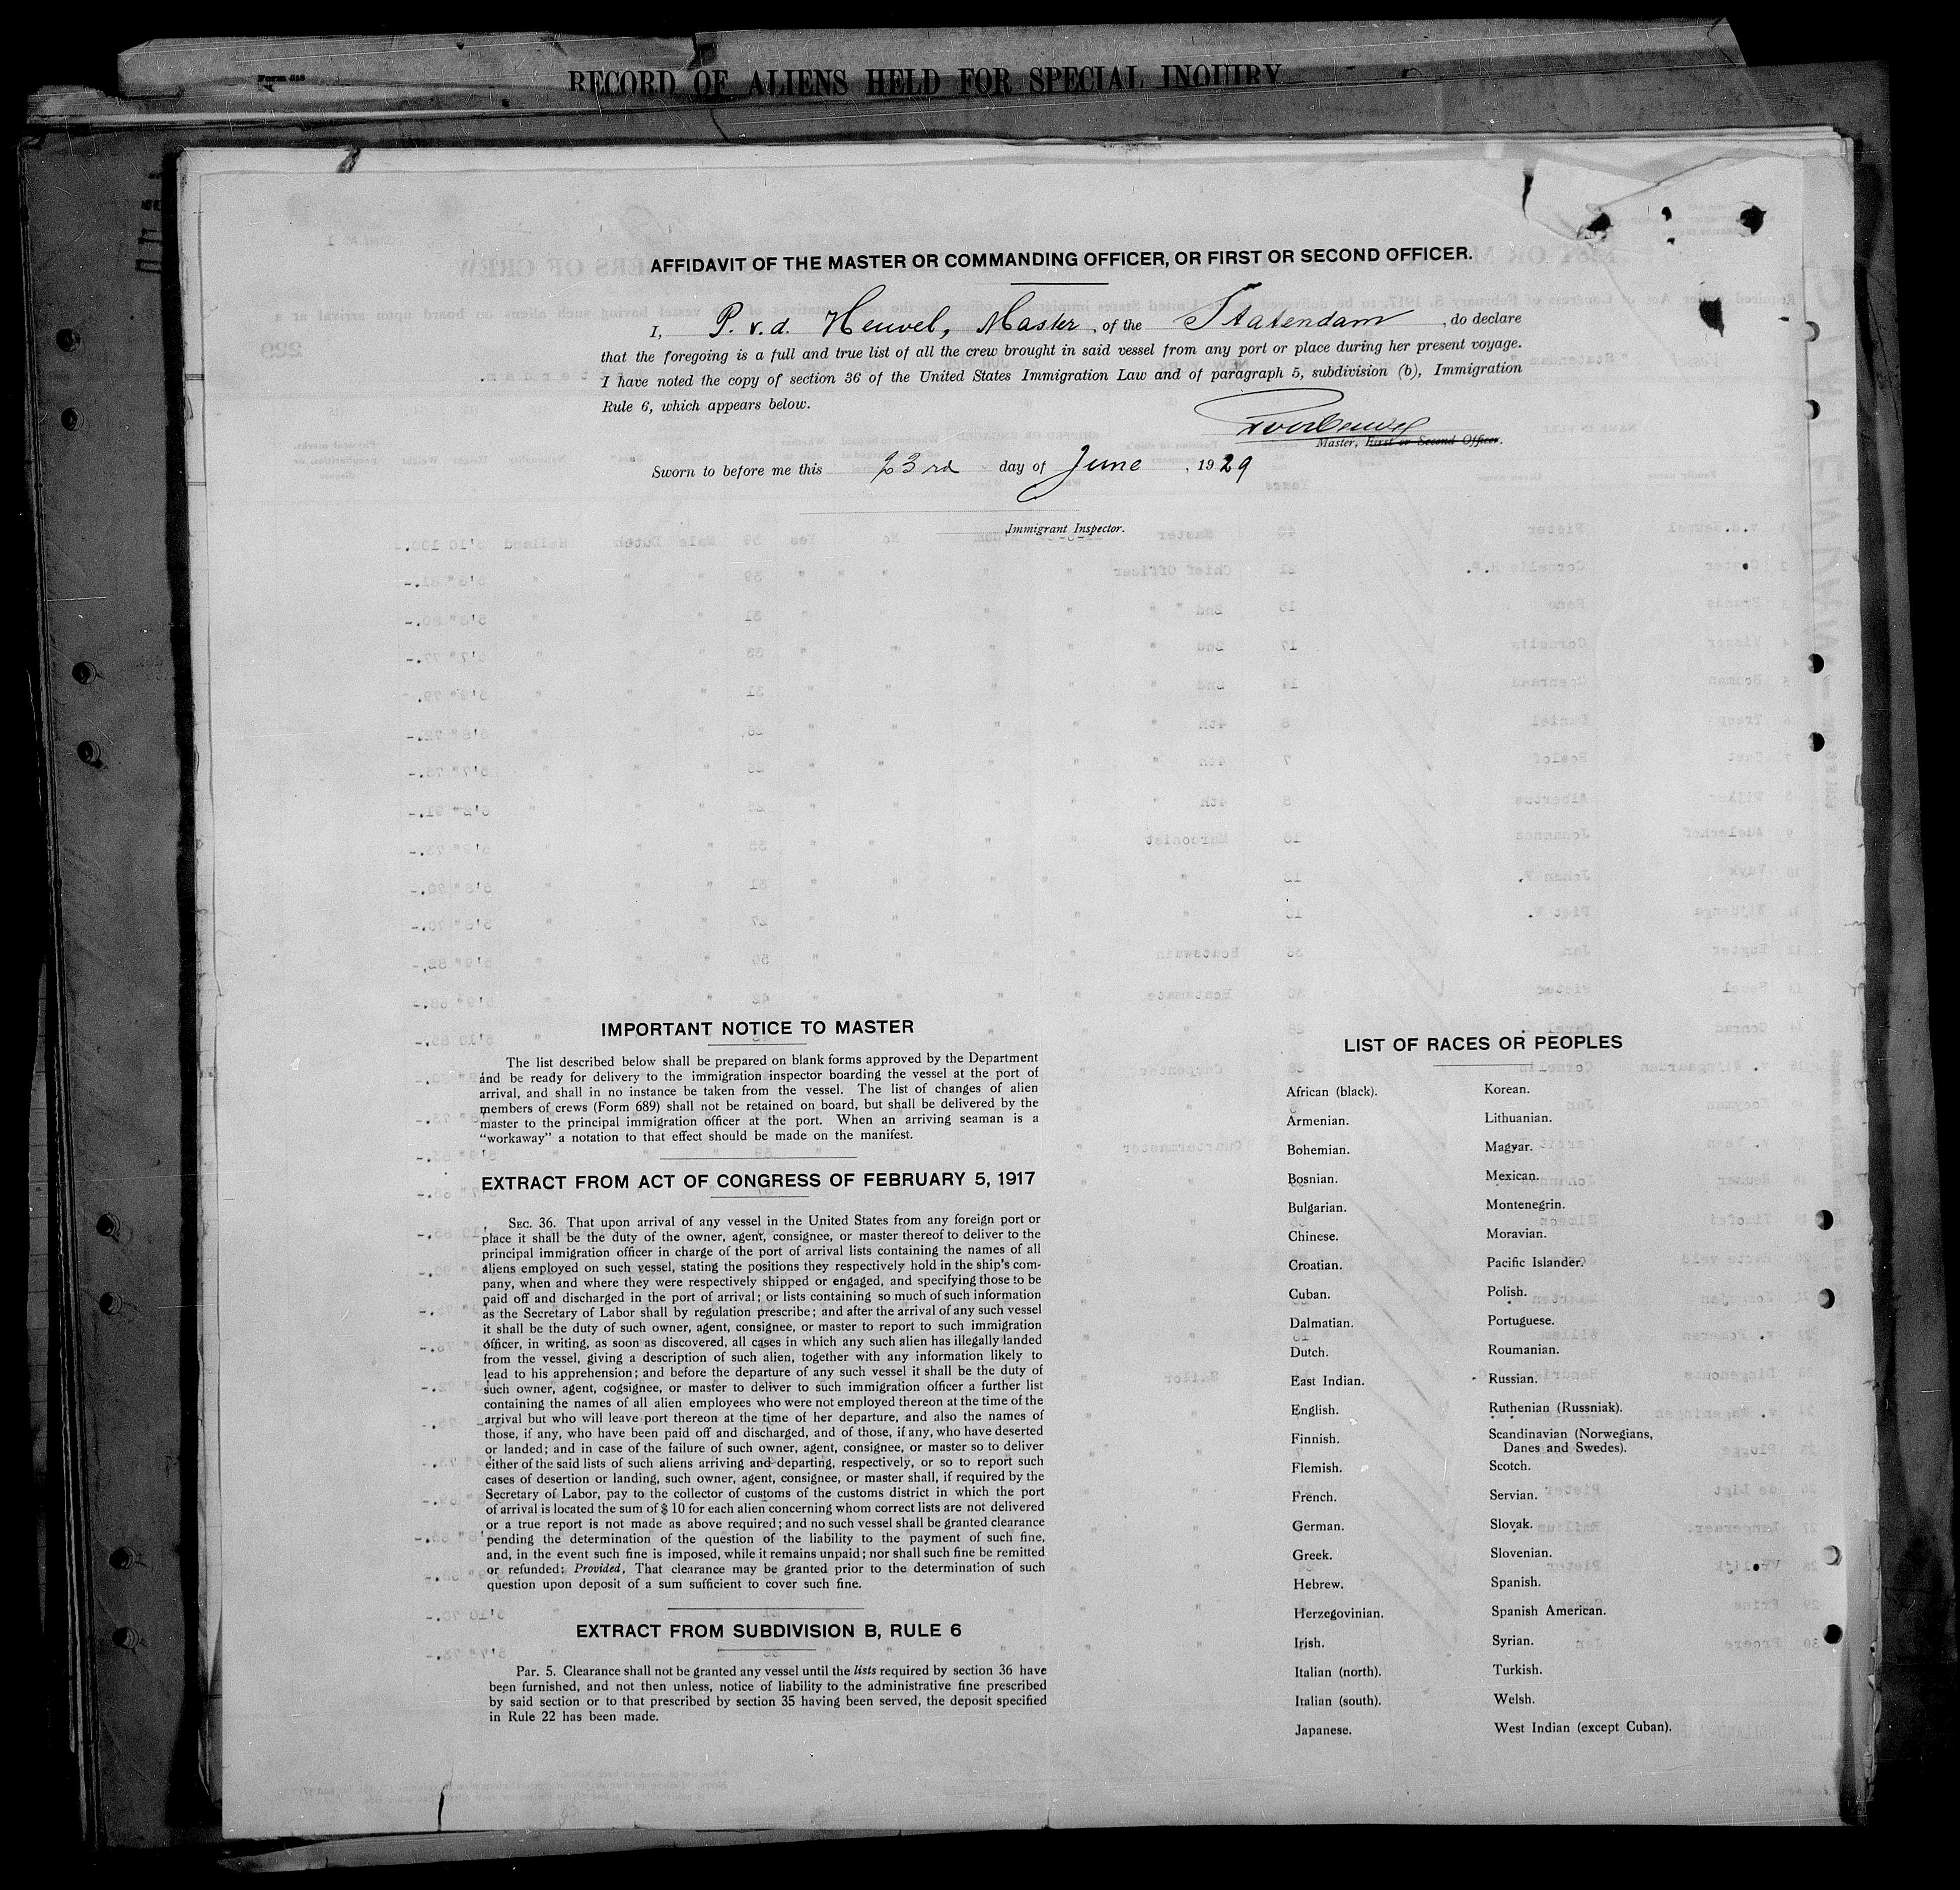 Form 616
RECORD OF ALIENS HELD FOR SPECIAL INQUIRY
AFFIDAVIT OF THE MASTER OR COMMANDING OFFICER, OR FIRST OR SECOND OFFICER.
I, P. v. d. Heuvel, Master, of the Statendam, do declare
that the foregoing is a full and true list of all the crew brought in said vessel from any port or place during her present voyage.
I have noted the copy of section 36 of the United States Immigration Law and of paragraph 5, subdivision (b), Immigration
Rule 6, which appears below.
Master, First or Second Officer.
Sworn to before me this 23rd day of June, 1929
Immigrant Inspector.
IMPORTANT NOTICE TO MASTER
The list described below shall be prepared on blank forms approved by the Department
and be ready for delivery to the immigration inspector boarding the vessel at the port of
arrival, and shall in no instance be taken from the vessel. The list of changes of alien
members of crews (Form 689) shall not be retained on board, but shall be delivered by the
master to the principal immigration officer at the port. When an arriving seaman is a
“workaway” a notation to that effect should be made on the manifest.
EXTRACT FROM ACT OF CONGRESS OF FEBRUARY 5, 1917
SEC. 36. That upon arrival of any vessel in the United States from any foreign port or
place it shall be the duty of the owner, agent, consignee, or master thereof to deliver to the
principal immigration officer in charge of the port of arrival lists containing the names of all
aliens employed on such vessel, stating the positions they respectively hold in the ship's com-
pany, when and where they were respectively shipped or engaged, and specifying those to be
paid off and discharged in the port of arrival; or lists containing so much of such information
as the Secretary of Labor shall by regulation prescribe; and after the arrival of any such vessel
it shall be the duty of such owner, agent, consignee, or master to report to such immigration
officer, in writing, as soon as discovered, all cases in which any such alien has illegally landed
from the vessel, giving a description of such alien, together with any information likely to
lead to his apprehension; and before the departure of any such vessel it shall be the duty of
such owner, agent, cogsignee, or master to deliver to such immigration officer a further list
containing the names of all alien employees who were not employed thereon at the time of the
arrival but who will leave port thereon at the time of her departure, and also the names of
those, if any, who have been paid off and discharged, and of those, if any, who have deserted
or landed; and in case of the failure of such owner, agent, consignee, or master so to deliver
either of the said lists of such aliens arriving and departing, respectively, or so to report such
cases of desertion or landing, such owner, agent, consignee, or master shall, if required by the
Secretary of Labor, pay to the collector of customs of the customs district in which the port
of arrival is located the sum of $ 10 for each alien concerning whom correct lists are not delivered
or a true report is not made as above required; and no such vessel shall be granted clearance
pending the determination of the question of the liability to the payment of such fine,
and, in the event such fine is imposed, while it remains unpaid; nor shall such fine be remitted
or refunded; Provided, That clearance may be granted prior to the determination of such
question upon deposit of a sum sufficient to cover such fine.
EXTRACT FROM SUBDIVISION B, RULE 6
Par. 5. Clearance shall not be granted any vessel until the lists required by section 36 have
been furnished, and not then unless, notice of liability to the administrative fine prescribed
by said section or to that prescribed by section 35 having been served, the deposit specified
in Rule 22 has been made.
LIST OF RACES OR PEOPLES
African (black).
Armenian.
Bohemian.
Bosnian.
Bulgarian.
Chinese.
Croatian.
Cuban.
Dalmatian.
Dutch.
East Indian.
English.
Finnish.
Flemish.
French.
German.
Greek.
Hebrew.
Herzegovinian.
Irish.
Italian (north).
Italian (south).
Japanese.
Korean.
Lithuanian.
Magyar.
Mexican.
Montenegrin.
Moravian.
Pacific Islander.
Polish.
Portuguese.
Roumanian.
Russian.
Ruthenian (Russniak).
Scandinavian (Norwegians,
Danes and Swedes).
Scotch.
Servian.
Slovak.
Slovenian.
Spanish.
Spanish American.
Syrian.
Turkish.
Welsh.
West Indian (except Cuban).